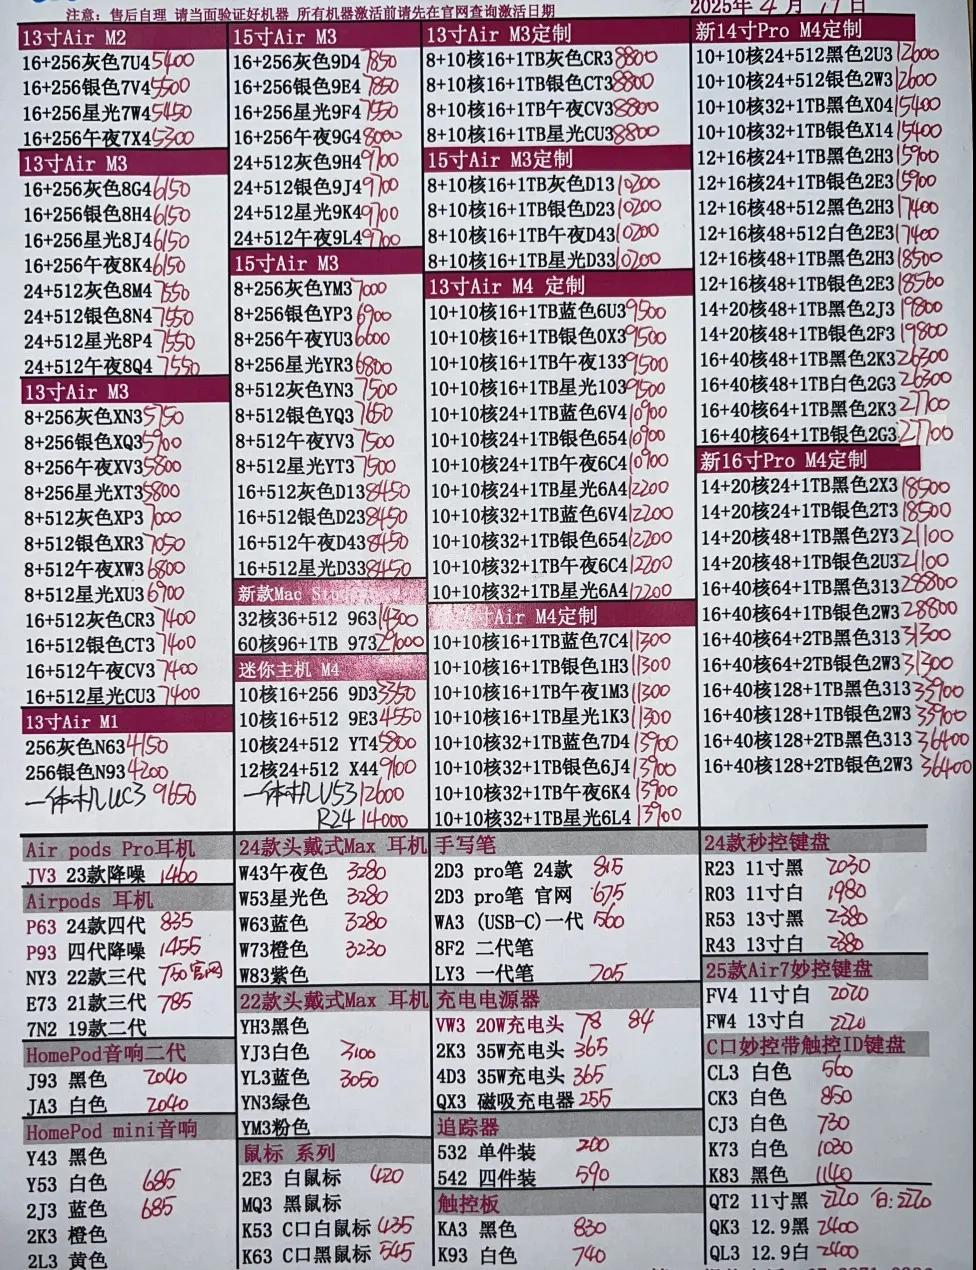 注意: 售后自理 请当面验证好机器 所有机器激活前请先在官网查询激活日期
2025年 4 月 17 日
13寸Air M2
16+256灰色7U4 5400
16+256银色7V4 5500
16+256星光7W4 5450
16+256午夜7X4 5300
13寸Air M3
16+256灰色8G4 6150
16+256银色8H4 6150
16+256星光8J4 6150
16+256午夜8K4 6150
24+512灰色8M4 7550
24+512银色8N4 7550
24+512星光8P4 7550
24+512午夜8Q4 7550
13寸Air M3
8+256灰色XN3 5750
8+256银色XQ3 5900
8+256午夜XV3 5800
8+256星光XT3 5800
8+512灰色XP3 7000
8+512银色XR3 7050
8+512午夜XW3 6800
8+512星光XU3 6900
16+512灰色CR3 7400
16+512银色CT3 7400
16+512午夜CV3 7400
16+512星光CU3 7400
13寸Air M1
256灰色N63 4150
256银色N93 4200
一体机UC3 9650
15寸Air M3
16+256灰色9D4 7850
16+256银色9E4 7850
16+256星光9F4 7550
16+256午夜9G4 8000
24+512灰色9H4 9700
24+512银色9J4 9700
24+512星光9K4 9700
24+512午夜9L4 9700
15寸Air M3
8+256灰色YM3 7000
8+256银色YP3 6900
8+256午夜YU3 6600
8+256星光YR3 6800
8+512灰色YN3 7500
8+512银色YQ3 7650
8+512午夜YV3 7500
8+512星光YT3 7500
16+512灰色D13 8450
16+512银色D23 8450
16+512午夜D43 8450
16+512星光D33 8450
新款Mac Stu
32核36+512 963 14300
60核96+1TB 973 29000
迷你主机 M4
10核16+256 9D3 3350
10核16+512 9E3 4550
10核24+512 YT4 5800
12核24+512 X44 9100
一体机U53 12600
R24 14000
13寸Air M3定制
8+10核16+1TB灰色CR3 8800
8+10核16+1TB银色CT3 8800
8+10核16+1TB午夜CV3 8800
8+10核16+1TB星光CU3 8800
15寸Air M3定制
8+10核16+1TB灰色D13 10200
8+10核16+1TB银色D23 10200
8+10核16+1TB午夜D43 10200
8+10核16+1TB星光D33 10200
13寸Air M4 定制
10+10核16+1TB蓝色6U3 9500
10+10核16+1TB银色0X3 9500
10+10核16+1TB午夜133 9500
10+10核16+1TB星光103 9500
10+10核24+1TB蓝色6V4 10900
10+10核24+1TB银色654 10900
10+10核24+1TB午夜6C4 10900
10+10核24+1TB星光6A4 12200
10+10核32+1TB蓝色6V4 12200
10+10核32+1TB银色654 12200
10+10核32+1TB午夜6C4 12200
10+10核32+1TB星光6A4 12200
寸Air M4定制
10+10核16+1TB蓝色7C4 11300
10+10核16+1TB银色1H3 11300
10+10核16+1TB午夜1M3 11300
10+10核16+1TB星光1K3 11300
10+10核32+1TB蓝色7D4 13900
10+10核32+1TB银色6J4 13900
10+10核32+1TB午夜6K4 13900
10+10核32+1TB星光6L4 13900
新14寸Pro M4定制
10+10核24+512黑色2U3 12600
10+10核24+512银色2W3 12600
10+10核32+1TB黑色X04 15400
10+10核32+1TB银色X14 15400
12+16核24+1TB黑色2H3 15900
12+16核24+1TB银色2E3 15900
12+16核48+512黑色2H3 17400
12+16核48+512白色2E3 17400
12+16核48+1TB黑色2H3 18500
12+16核48+1TB银色2E3 18500
14+20核48+1TB黑色2J3 19800
14+20核48+1TB银色2F3 19800
16+40核48+1TB黑色2K3 26300
16+40核48+1TB白色2G3 26300
16+40核64+1TB黑色2K3 27700
16+40核64+1TB银色2G3 27700
新16寸Pro M4定制
14+20核24+1TB黑色2X3 18500
14+20核24+1TB银色2T3 18500
14+20核48+1TB黑色2Y3 21100
14+20核48+1TB银色2U3 21100
16+40核64+1TB黑色313 28800
16+40核64+1TB银色2W3 28800
16+40核64+2TB黑色313 31300
16+40核64+2TB银色2W3 31300
16+40核128+1TB黑色313 33900
16+40核128+1TB银色2W3 33900
16+40核128+2TB黑色313 36400
16+40核128+2TB银色2W3 36400
Air pods Pro耳机
JV3 23款降噪 1460
Airpods 耳机
P63 24款四代 835
P93 四代降噪 1455
NY3 22款三代 750官网
E73 21款三代 785
7N2 19款二代
HomePod音响二代
J93 黑色 2040
JA3 白色 2040
HomePod mini音响
Y43 黑色
Y53 白色 685
2J3 蓝色 685
2K3 橙色
2L3 黄色
24款头戴式Max 耳机
W43午夜色 3280
W53星光色 3280
W63蓝色 3280
W73橙色 3230
W83紫色
22款头戴式Max 耳机
YH3黑色
YJ3白色 3100
YL3蓝色 3050
YN3绿色
YM3粉色
鼠标 系列
2E3 白鼠标 420
MQ3 黑鼠标
K53 C口白鼠标 435
K63 C口黑鼠标 545
手写笔
2D3 pro笔 24款 815
2D3 pro笔 官网 675
WA3 (USB-C)一代 560
8F2 二代笔
LY3 一代笔 705
充电电源器
VW3 20W充电头 78 84
2K3 35W充电头 365
4D3 35W充电头 365
QX3 磁吸充电器 255
追踪器
532 单件装 200
542 四件装 590
触控板
KA3 黑色 830
K93 白色 740
24款秒控键盘
R23 11寸黑 2030
R03 11寸白 1980
R53 13寸黑 2380
R43 13寸白 2380
25款Air7妙控键盘
FV4 11寸白 2020
FW4 13寸白 2220
C口妙控带触控ID键盘
CL3 白色 560
CK3 白色 850
CJ3 白色 730
K73 白色 1030
K83 黑色 1140
QT2 11寸黑 2220 白:2220
QK3 12.9黑 2400
QL3 12.9白 2400